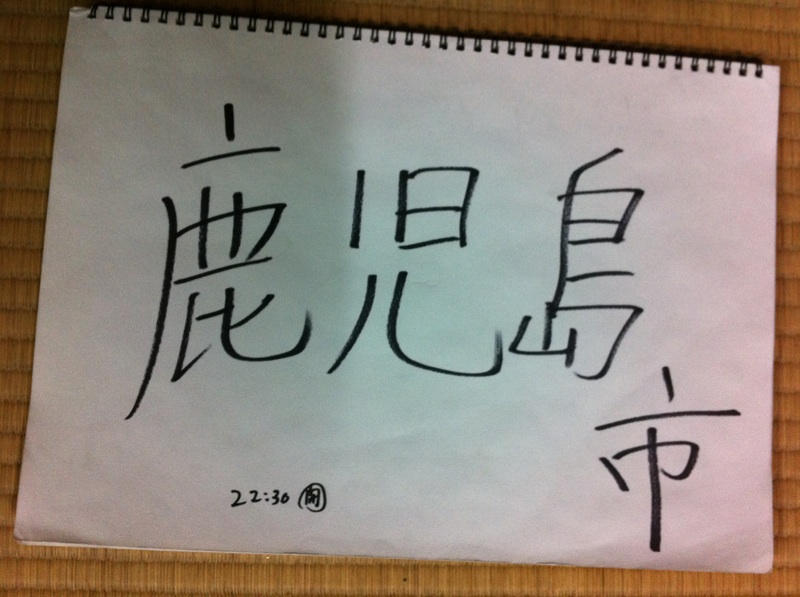 鹿児島
市
22:30 開